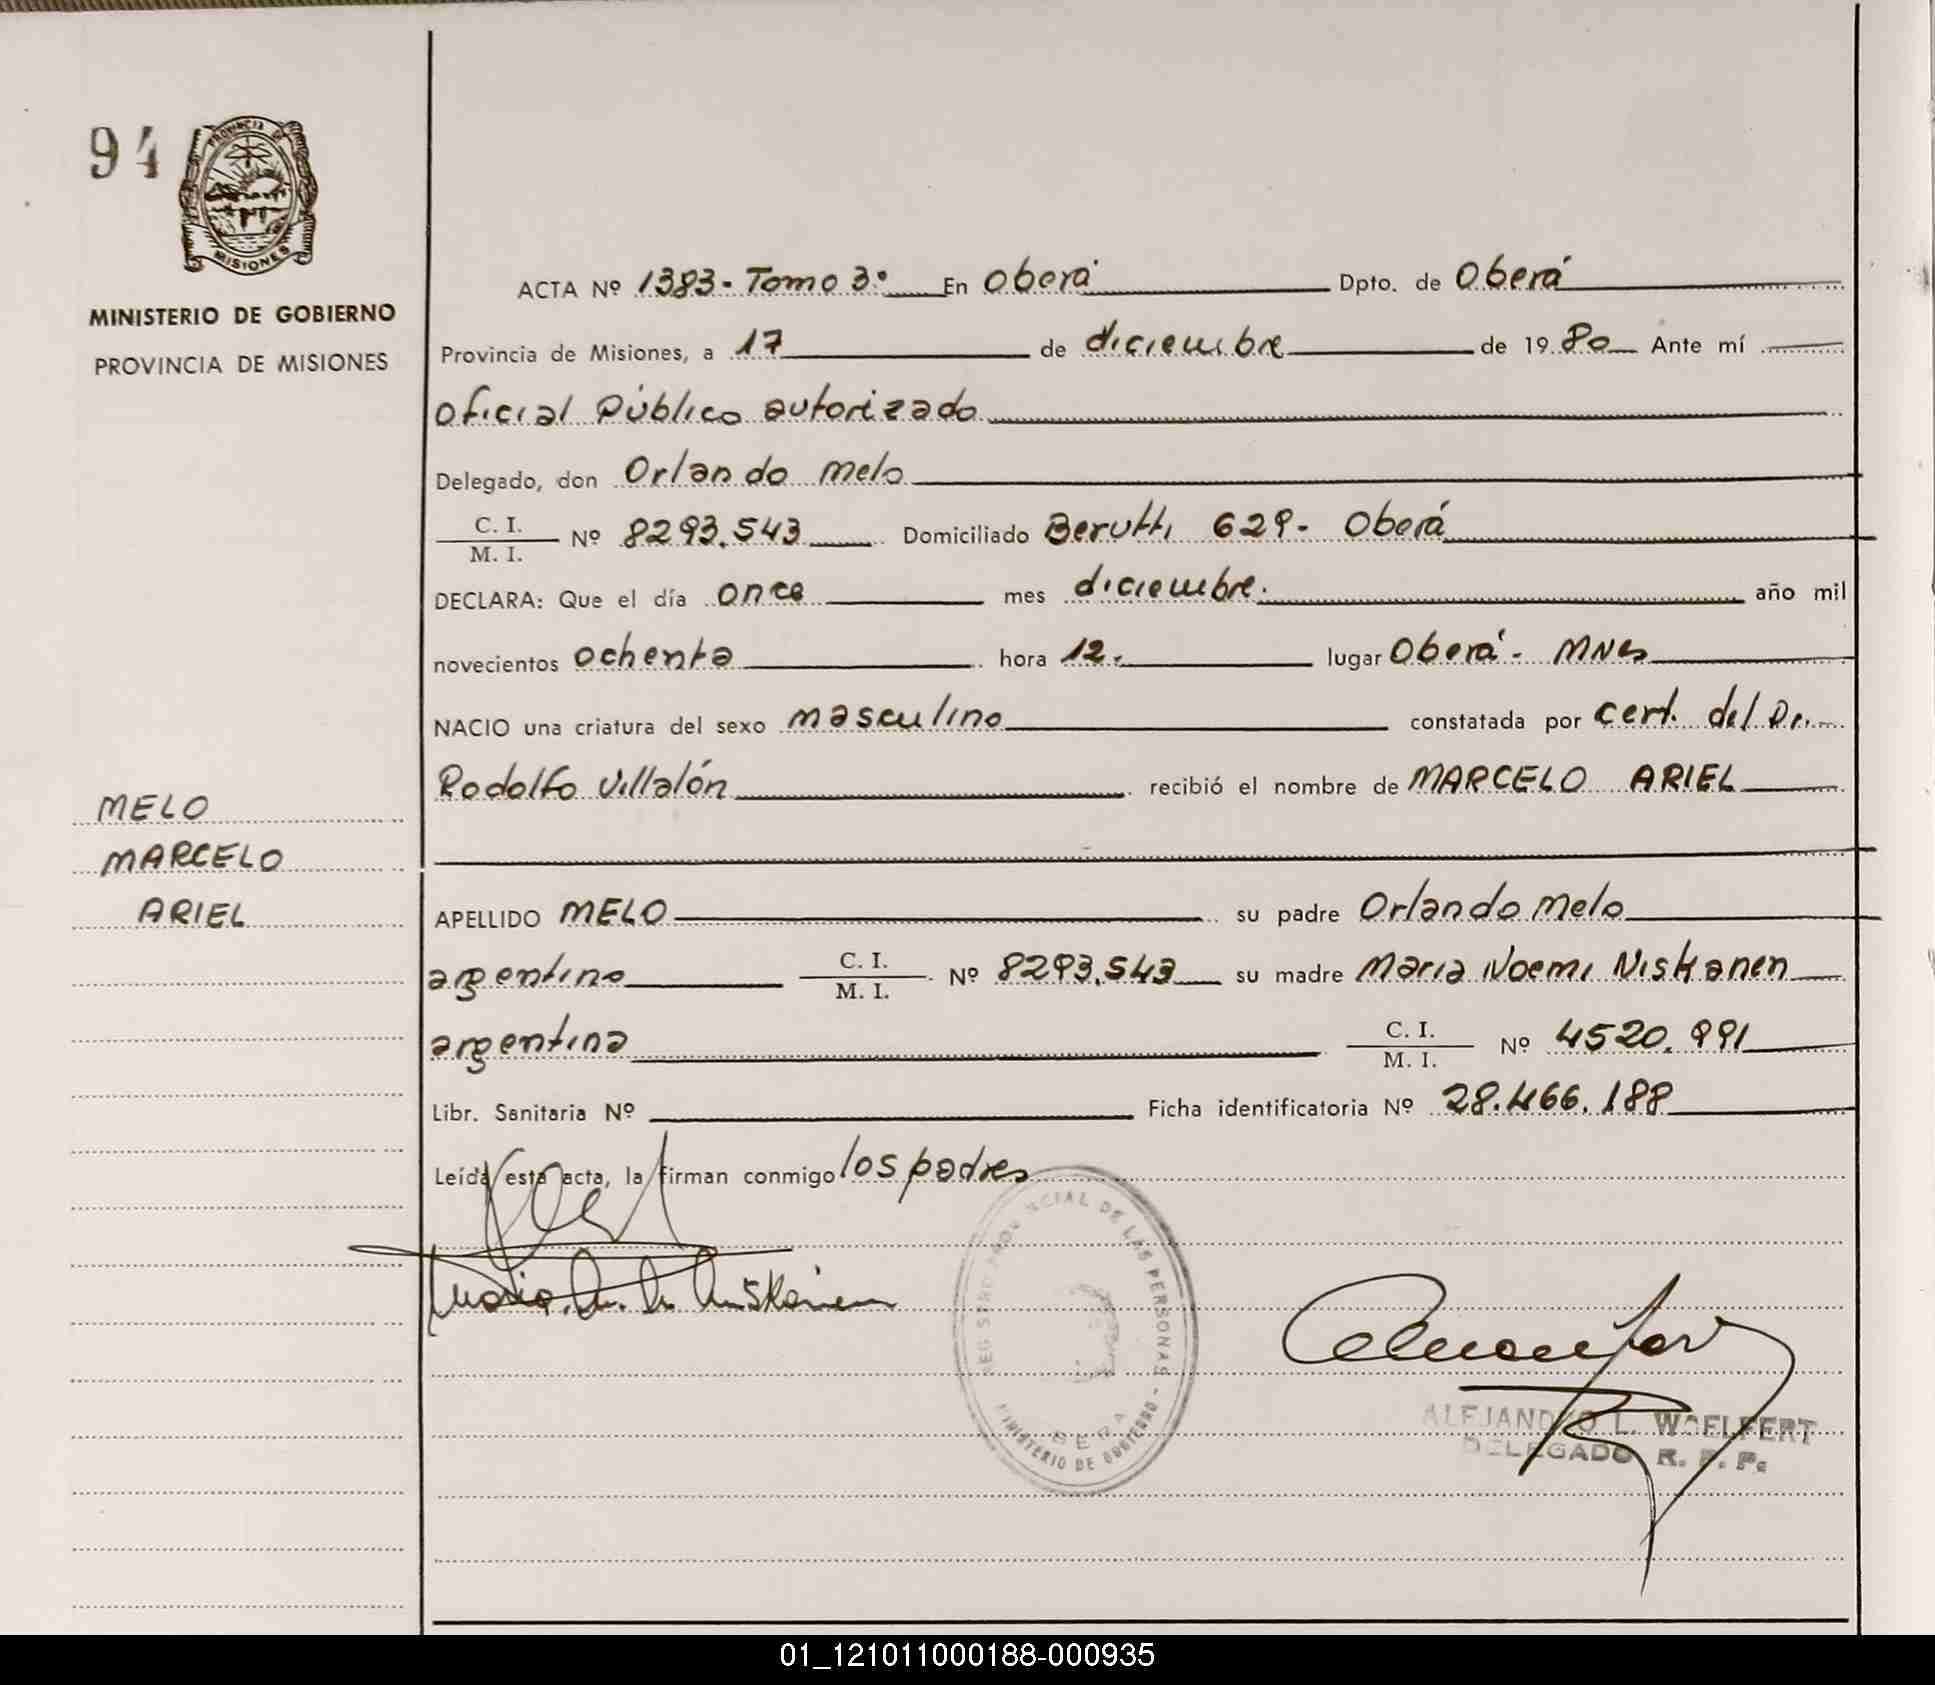 94
PROVINCIA DE
MISIONES
MINISTERIO DE GOBIERNO
PROVINCIA DE MISIONES
MELO
MARCELO
ARIEL
ACTA Nº 1383 - Tomo 3º En Oberá Dpto. de Oberá
Provincia de Misiones, a 17 de diciembre de 19 80 Ante mí
Oficial Público autorizado
Delegado, don Orlando Melo
C. I. / M. I. Nº 8293.543 Domiciliado Berutti 629 - Oberá
DECLARA: Que el día once mes diciembre. año mil
novecientos ochenta hora 12. lugar Oberá - MNes
NACIO una criatura del sexo masculino constatada por cert. del Dr.
Rodolfo Villalón recibió el nombre de MARCELO ARIEL
APELLIDO MELO su padre Orlando Melo
argentino C. I. / M. I. Nº 8293.543 su madre Maria Noemi Niskanen
argentina C. I. / M. I. Nº 4520.991
Libr. Sanitaria Nº Ficha identificatoria Nº 28.466.188
Leída esta acta, la firman conmigo los padres
REGISTRO PROVINCIAL DE LAS PERSONAS -
MINISTERIO DE GOBIERNO
ALEJANDRO L. WOELFERT
DELEGADO R. P. P.
01_121011000188-000935